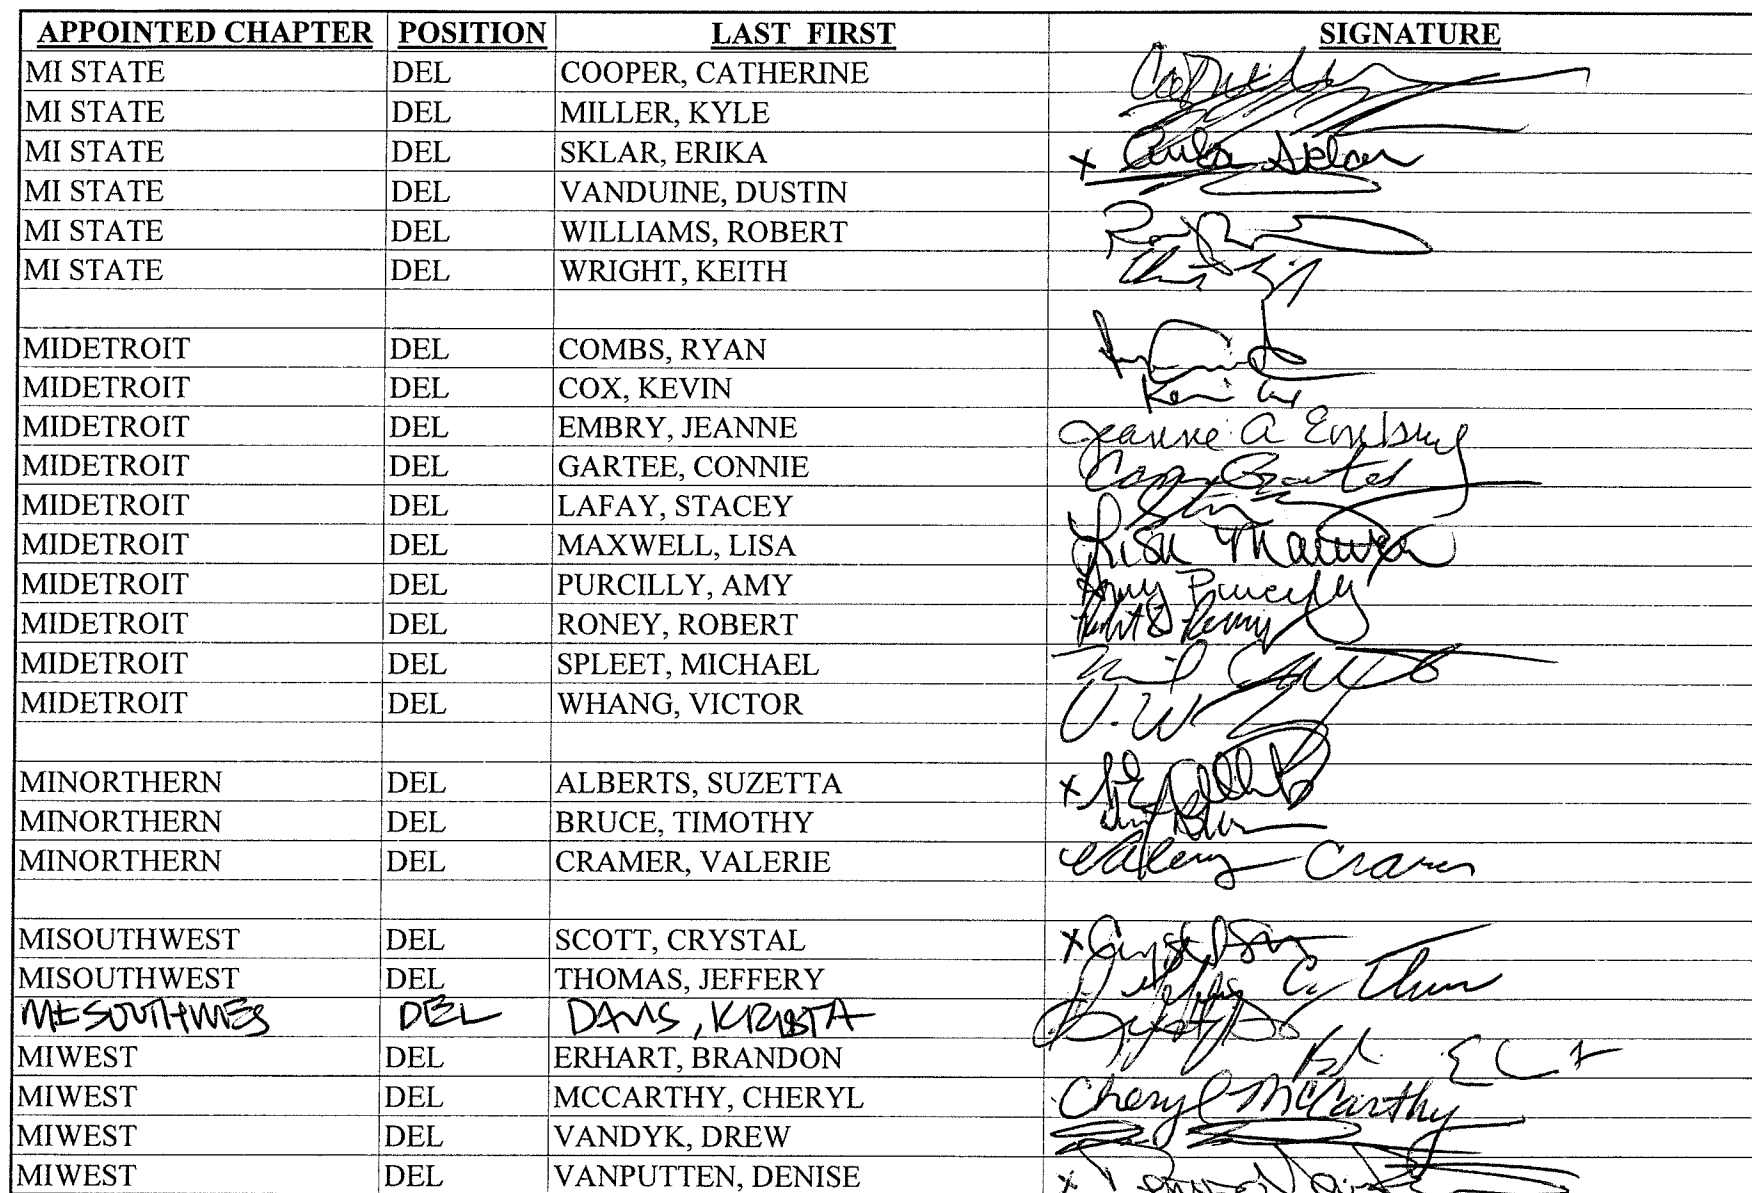 APPOINTED CHAPTER POSITION LAST FIRST SIGNATURE
MI STATE DEL COOPER, CATHERINE
MI STATE DEL MILLER, KYLE
MI STATE DEL SKLAR, ERIKA x Erika Sklar
MI STATE DEL VANDUINE, DUSTIN
MI STATE DEL WILLIAMS, ROBERT
MI STATE DEL WRIGHT, KEITH
MIDETROIT DEL COMBS, RYAN
MIDETROIT DEL COX, KEVIN Kevin Cox
MIDETROIT DEL EMBRY, JEANNE Jeanne A Embry
MIDETROIT DEL GARTEE, CONNIE Connie Gartee
MIDETROIT DEL LAFAY, STACEY
MIDETROIT DEL MAXWELL, LISA Lisa Maxwell
MIDETROIT DEL PURCILLY, AMY Amy Purcilly
MIDETROIT DEL RONEY, ROBERT
MIDETROIT DEL SPLEET, MICHAEL
MIDETROIT DEL WHANG, VICTOR V. W
MINORTHERN DEL ALBERTS, SUZETTA x
MINORTHERN DEL BRUCE, TIMOTHY
MINORTHERN DEL CRAMER, VALERIE Valerie Cramer
MISOUTHWEST DEL SCOTT, CRYSTAL x
MISOUTHWEST DEL THOMAS, JEFFERY
MISOUTHWES DEL DAVIS, KRISTA
MIWEST DEL ERHART, BRANDON
MIWEST DEL MCCARTHY, CHERYL Cheryl McCarthy
MIWEST DEL VANDYK, DREW
MIWEST DEL VANPUTTEN, DENISE x